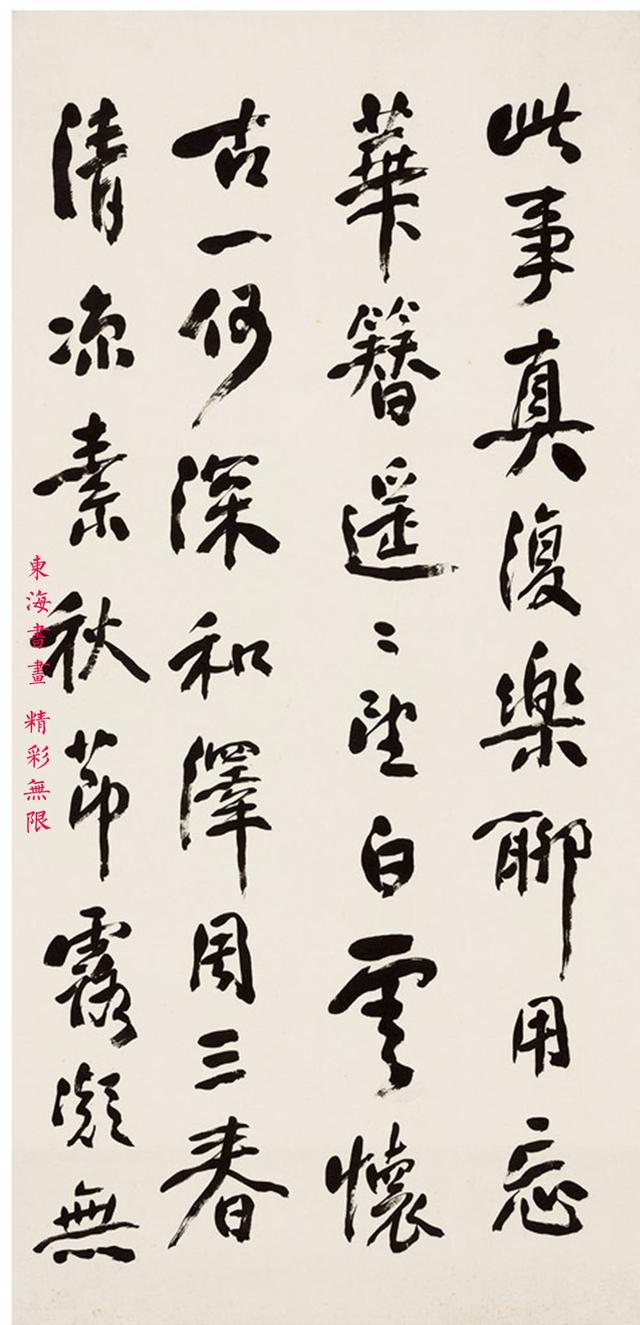 此事真復樂聊用忘
華簪遥〻望白雲懷
古一何深和澤周三春
清涼素秋節露凝無
東海書畫 精彩無限